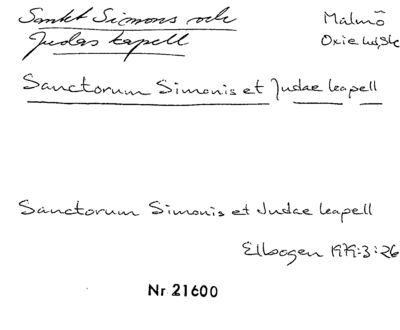 Sankt Simons och
Judas kapell
Malmö
Oxie hd, Sk
Sanctorum Simonis et Judae kapell
Sanctorum Simonis et Judae kapell
Elbogen 1979:3:26
Nr 21600